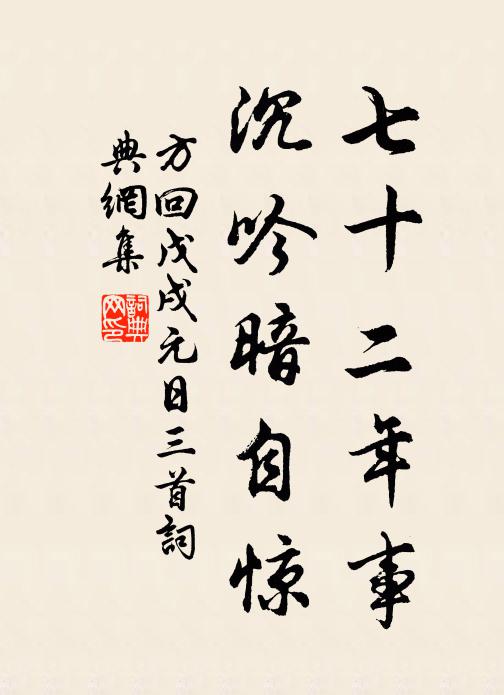 七十二年事
沉吟暗自惊
方回戊戌元日三首詞
典網集
詞典网印